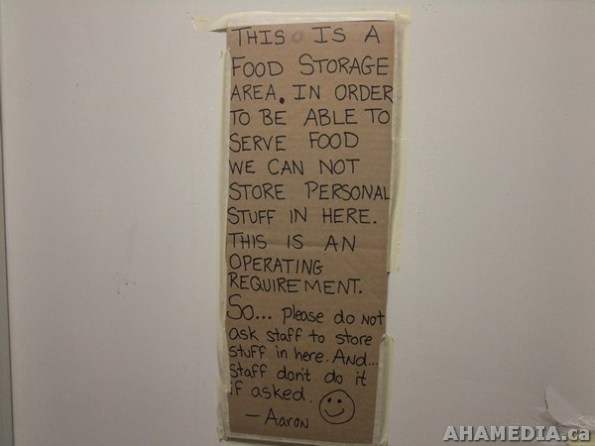 THIS IS A
FOOD STORAGE
AREA. IN ORDER
TO BE ABLE TO
SERVE FOOD
WE CAN NOT
STORE PERSONAL
STUFF IN HERE.
THIS IS AN
OPERATING
REQUIREMENT.
SO... please do NOT
ask staff to store
stuff in here. And...
staff don't do it
if asked.
- Aaron
AHAMEDIA.ca